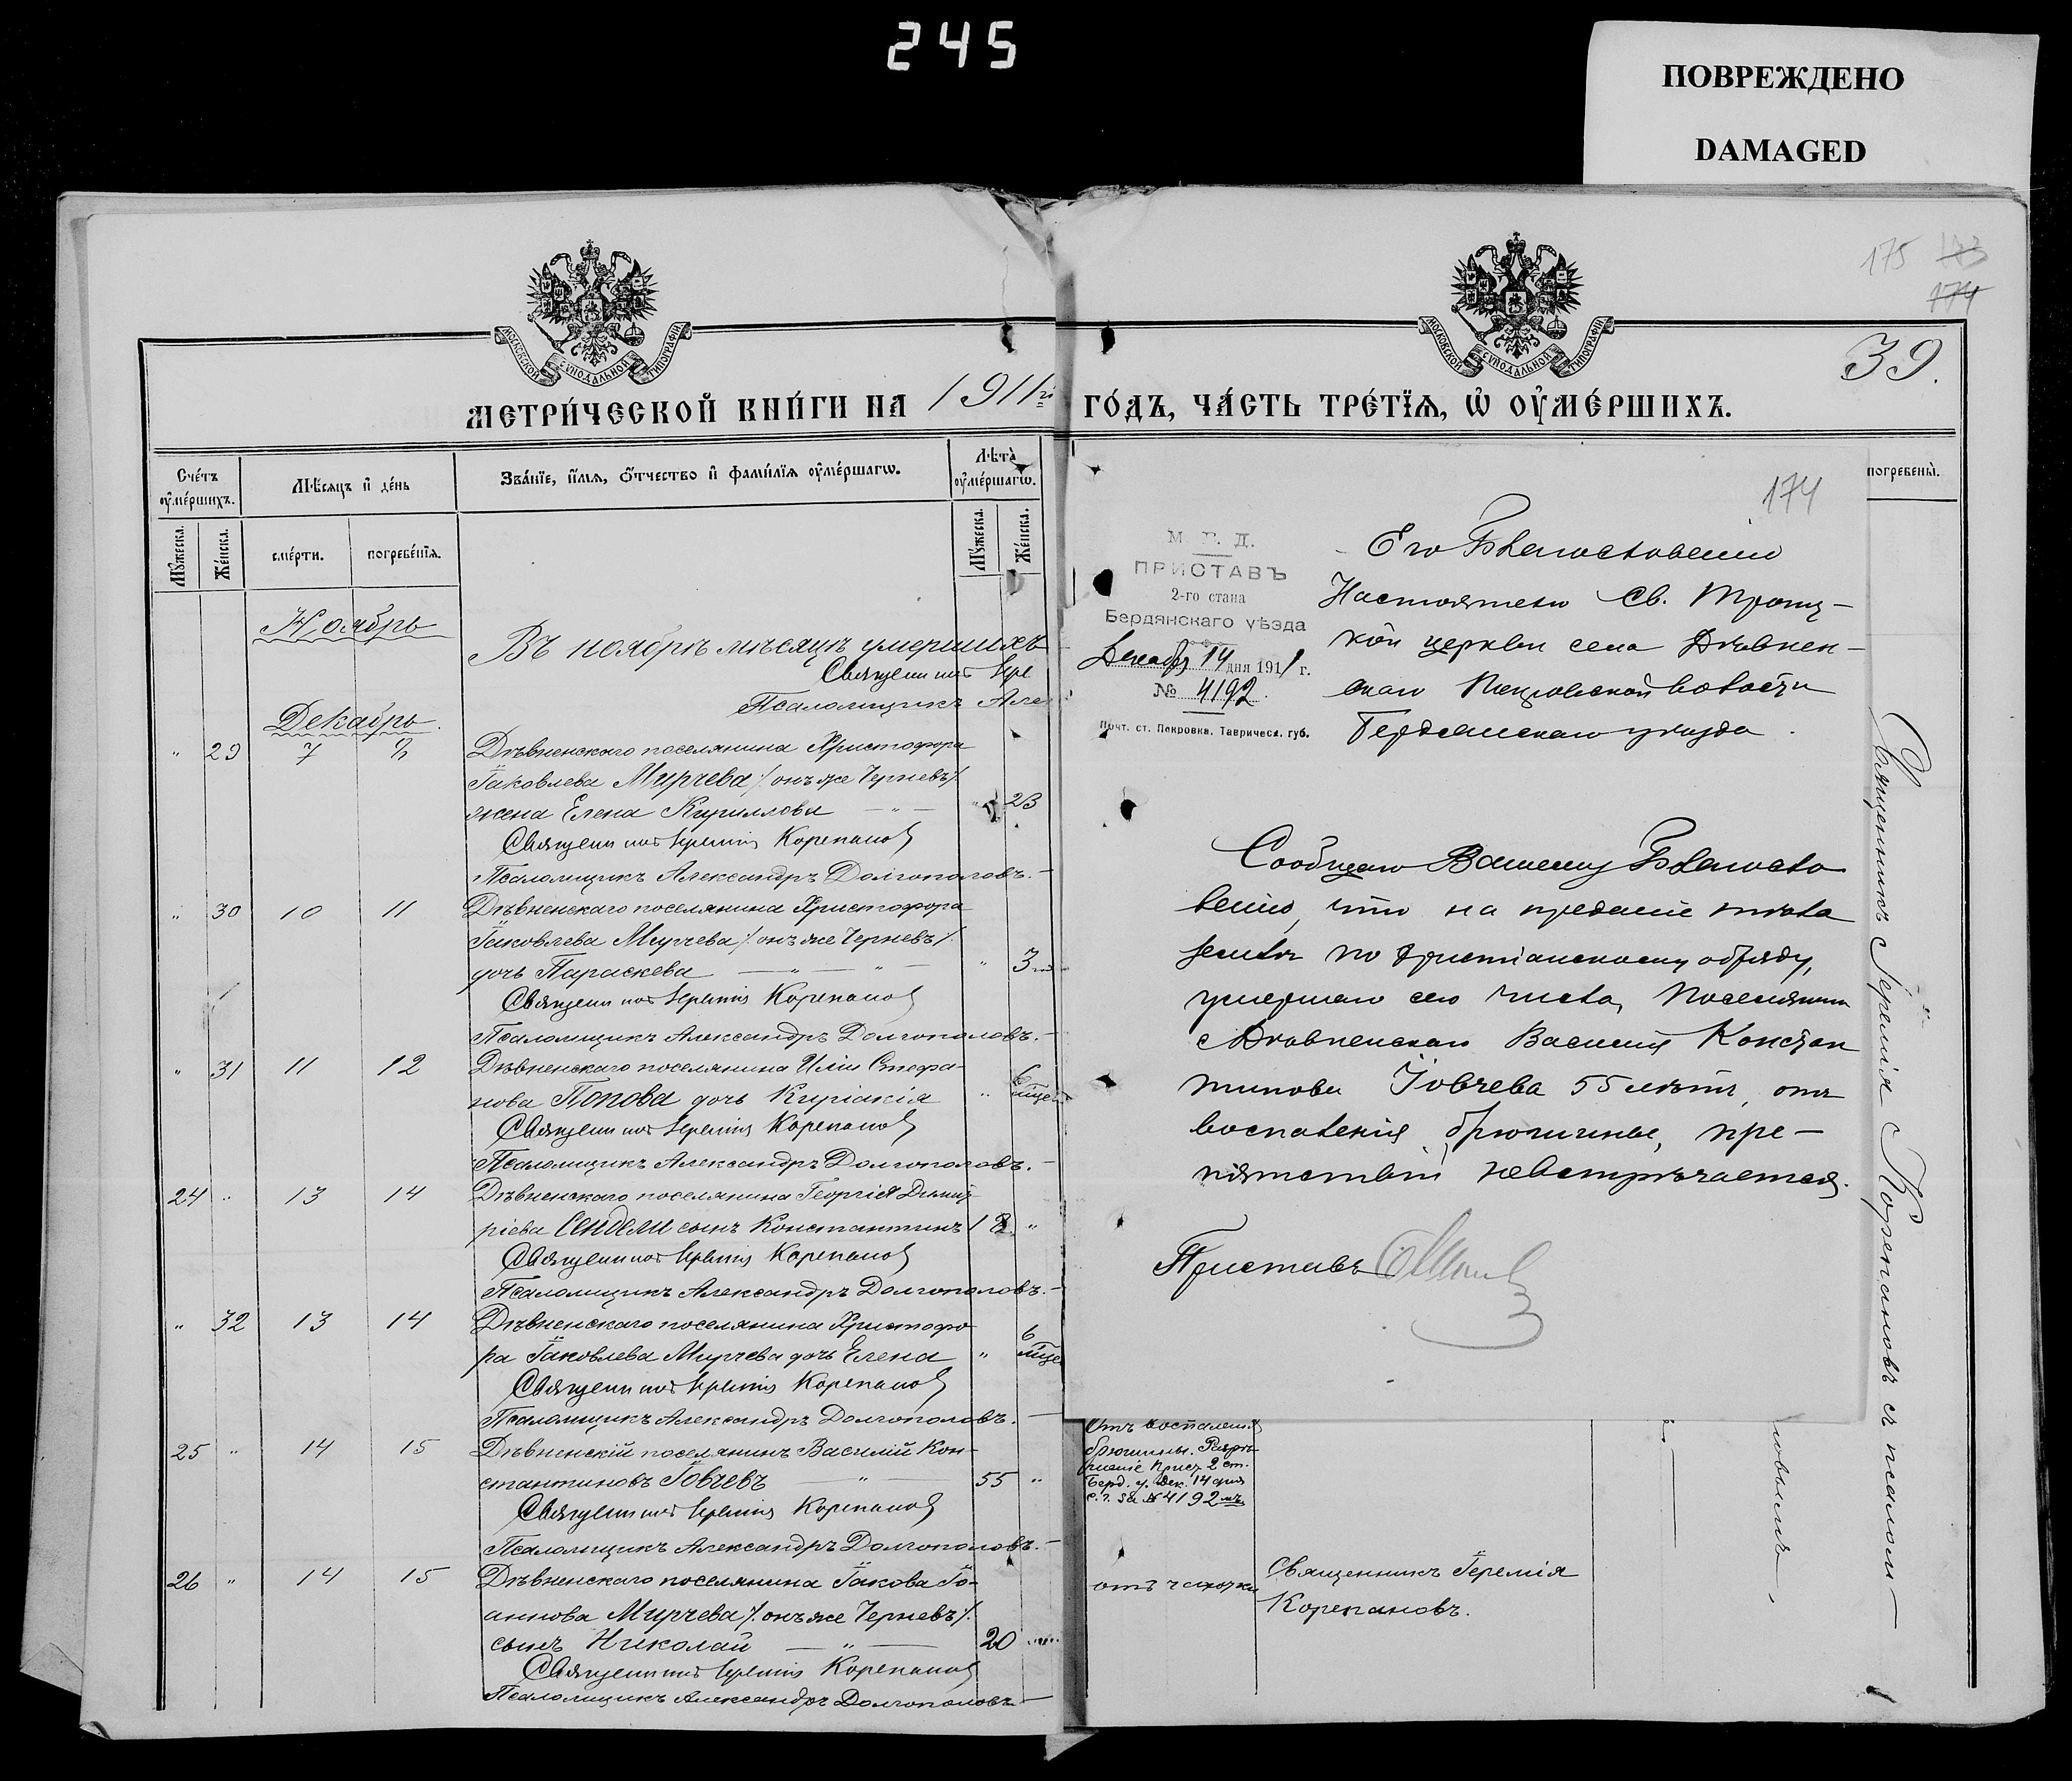 245
ПОВРЕЖДЕНО
DAMAGED
МОСКОВСКОЙ СѴНОДАЛЬНОЙ ТИПОГРАФІИ
МЕТРИ́ЧЕСКОЙ КНИ́ГИ НА 1911й
Сче́тъ ᲂу҆ме́ршихъ.
Мѣ́сяцъ и҆ де́нь
Зва́нїе, и҆́мя, ѻ҆́тчество и҆ фами́лїя ᲂу҆ме́ршагѡ.
Лѣ́та ᲂу҆ме́ршагѡ.
Мꙋ́жеска.
Же́нска.
сме́рти.
погребе́нїя.
Мꙋ́жеска.
Же́нска.
Ноябрь
Въ ноябрѣ мѣсяцѣ умершихъ
Священникъ Іере
Псаломщикъ Але
Декабрь
" 29 7 Дѣвненскаго поселянина Христофора
Іаковлева Мурчева /. онъ же Черневъ/.
жена Елена Кириллова — " — " 23
Священникъ Іеремія Корепановъ
Псаломщикъ Александръ Долгополовъ.—
" 30 10 11 Дѣвненскаго поселянина Христофора
Іаковлева Мурчева /. онъ же Черневъ/.
дочь Параскева — " — " — " 3
Священникъ Іеремія Корепановъ
Псаломщикъ Александръ Долгополовъ.—
" 31 11 12 Дѣвненскаго поселянина Иліи Стефа-
нова Попова дочь Киріакія " 6 мѣсе
Священникъ Іеремія Корепановъ
Псаломщикъ Александръ Долгополовъ.—
24 " 13 14 Дѣвненскаго поселянина Георгія Димит-
ріева Сендели сынъ Константинъ "
Священникъ Іеремія Корепановъ
Псаломщикъ Александръ Долгополовъ.—
" 32 13 14 Дѣвненскаго поселянина Христофо-
ра Іаковлева Мурчева дочь Елена " 6 мѣсе
Священникъ Іеремія Корепановъ
Псаломщикъ Александръ Долгополовъ.—
25 " 14 15 Дѣвненскій поселянинъ Василій Кон-
стантиновъ Іовчевъ — " — 55 "
Священникъ Іеремія Корепановъ
Псаломщикъ Александръ Долгополовъ.—
26 " 14 15 Дѣвненскаго поселянина Іакова Іо-
аннова Мурчева /. онъ же Черневъ/.
сынъ Николай — " — 20
Священникъ Іеремія Корепановъ
Псаломщикъ Александръ Долгополовъ—
175 173
174
МОСКОВСКОЙ СѴНОДАЛЬНОЙ ТИПОГРАФІИ
39.
ГО́ДЪ, ЧА́СТЬ ТРЕ́ТЇЯ, Ѡ҆ ОУ҆МЕ́РШИХЪ.
погребены̀.
174
М. В. Д.
ПРИСТАВЪ
2-го стана
Бердянскаго уѣзда
Декабр 14 дня 1911 г.
№ 4192.
Почт. ст. Покровка, Тавричесн. губ.
Его Благословенію
Настоятелю Св. Троиц-
кой церкви села Дѣвнен-
скаго волости
Бердянскаго уѣзда.
Сообщаю Вашему Благосло
венію, что на преданіе тѣла
землѣ по христіанскому обряду,
умершаго сего числа, поселянина
с Дѣвненскаго Василія Констан
тинова Іовчева 55 лѣтъ, отъ
воспаленія брюшины, пре-
пятствій невстрѣчается.
Приставъ
Отъ воспаленія
брюшины. Разрѣ-
шеніе прист. 2 ст.
Берд. у. Дек. 14 дня
с. г. за № 4192 мъ
отъ чахотки
Священникъ Іеремія
Корепановъ.
Священникъ Іеремія Корепановъ съ псалом-